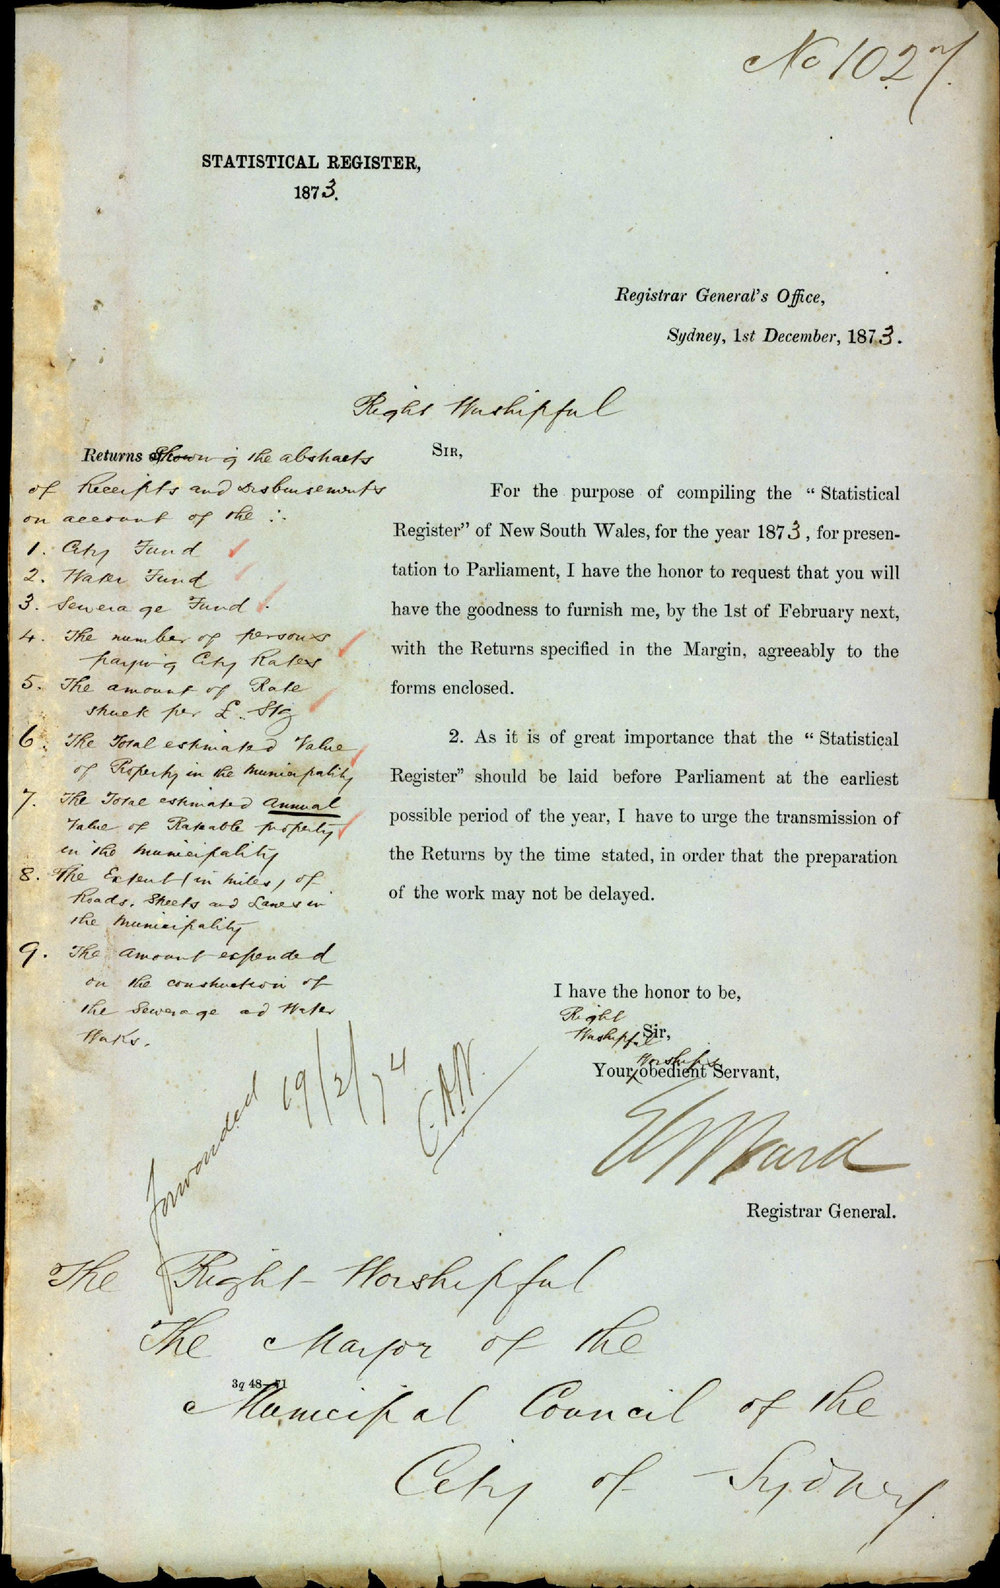 No 1027.
STATISTICAL REGISTER,
1873.
Registrar General's Office,
Sydney, 1st December, 1873.
Right Worshipful
SIR,
Returns of Showing the abstracts
of Receipts and Disbursements
on account of the :.
1. City Fund
2. Water Fund
3. Sewerage Fund.
4. The number of persons
paying City Rates
5. The amount of Rate
struck per £. Stg
6. The Total estimated Value
of Property in the Municipality
7. The Total estimated Annual
Value of Rateable property
in the Municipality
8. The Extent (in miles) of
Roads, Streets and Lanes in
the Municipality
9. The amount expended
on the construction of
the Sewerage and Water
Works.
For the purpose of compiling the "Statistical
Register" of New South Wales, for the year 1873, for presen-
tation to Parliament, I have the honor to request that you will
have the goodness to furnish me, by the 1st of February next,
with the Returns specified in the Margin, agreeably to the
forms enclosed.
2. As it is of great importance that the "Statistical
Register" should be laid before Parliament at the earliest
possible period of the year, I have to urge the transmission of
the Returns by the time stated, in order that the preparation
of the work may not be delayed.
I have the honor to be,
Right
Worshipful Sir,
Worship's
Your obedient Servant,
Ward
Registrar General.
forwarded 19/2/74
The Right Worshipful
The Mayor of the
3q 48—71
Municipal Council of the
City of Sydney